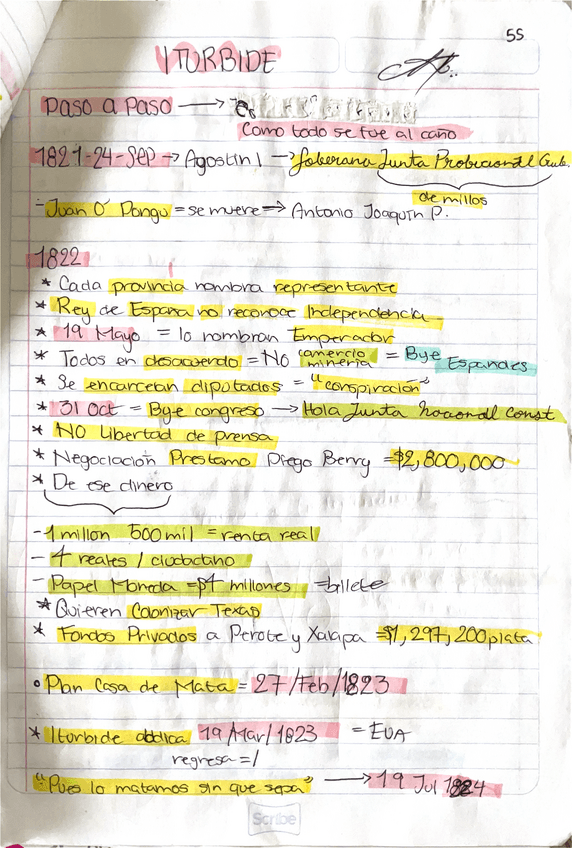 55
ITURBIDE
Paso a Paso →
Como todo se fue al caño
1821-24-Sep → Agostin I → Soberana Junta Probicional Gub.
de millos
- Juan O' Dongu = se muere → Antonio Joaquín P.
1822
* Cada provincia nombra representante
* Rey de España no reconoce Independencia
* 19 Mayo = lo nombran Emperador
* Todos en desacuerdo = No comercio minería = Bye Españoles
* Se encarcelan diputados = "conspiración"
* 31 Oct = Bye congreso → Hola Junta nacional const
* NO Libertad de prensa
* Negociación Prestamo Diego Berry = $2,800,000
* De ese dinero
- 1 millon 500 mil = renta real
- 4 reales / ciudadano
- Papel Moneda = $4 millones = billete
* Quieren Colonizar Texas
* Fondos Privados a Perote y Xalapa = $1,297,200 plata
• Plan Casa de Mata = 27/Feb/1823
* Iturbide abdica 19/Mar/1823 = EUA
regresa = /
"Pues lo matamos sin que sepa" → 19 Jul 1824
Scribe